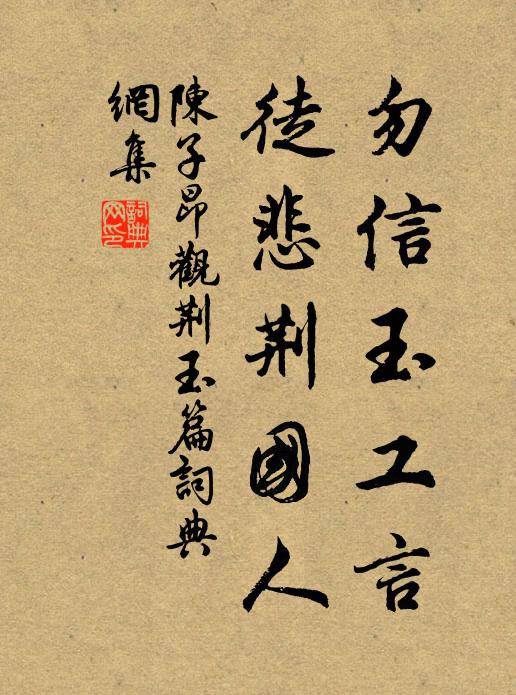 勿信玉工言
徒悲荆國人
陳子昂觀荆玉篇詞典
網集
詞典
網印